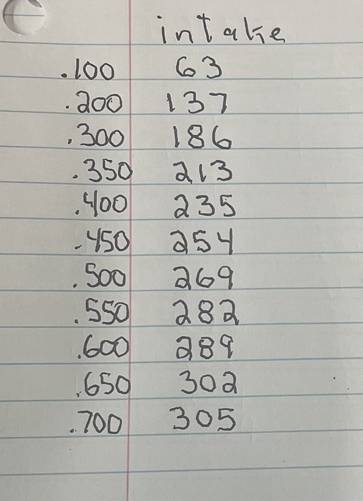 intake
.100 63
.200 137
.300 186
.350 213
.400 235
.450 254
.500 269
.550 282
.600 289
.650 302
.700 305